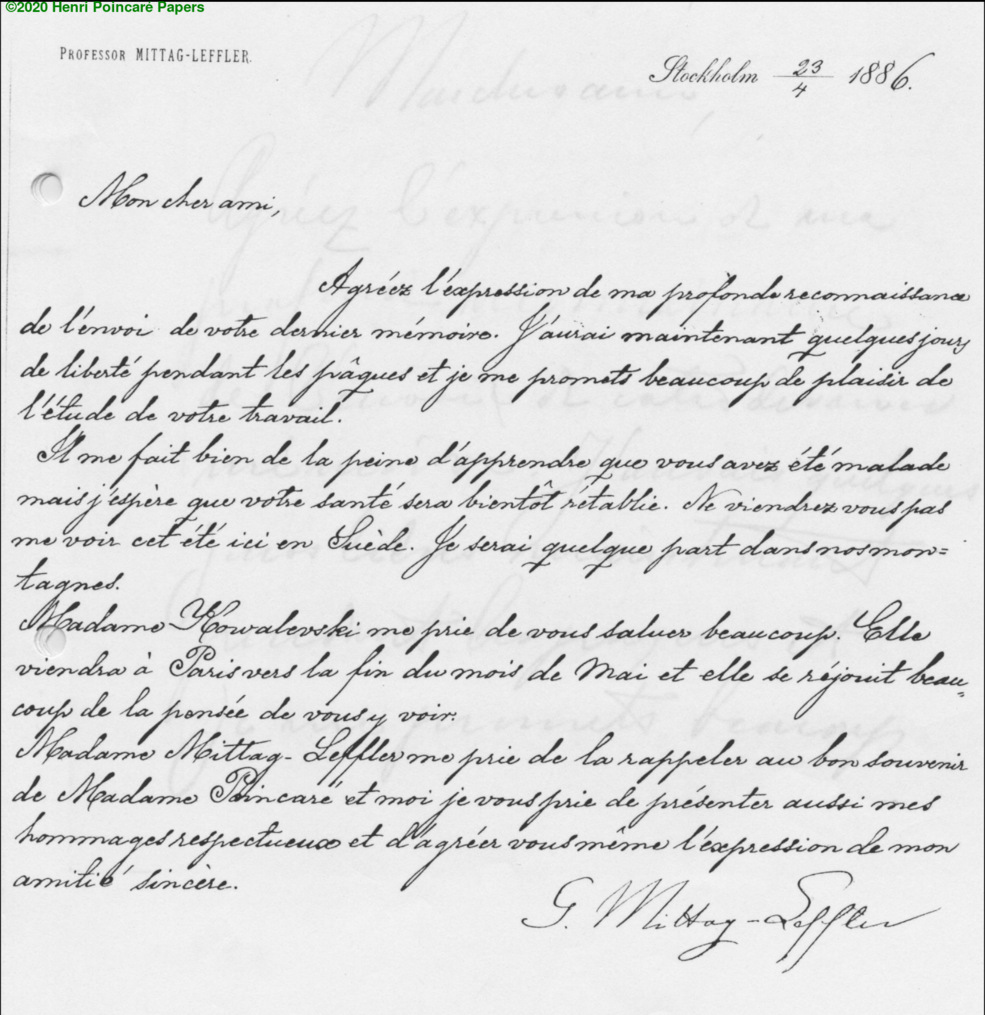 ©2020 Henri Poincaré Papers
PROFESSOR MITTAG-LEFFLER.
Stockholm 23/4 1886.
Mon cher ami,
Agréez l'éxpression de ma profonde reconnaissance
de l'énvoi de votre dernier mémoire. J'aurai maintenant quelques jours
de liberté pendant les pâques et je me promets beaucoup de plaisir de
l'étude de votre travail.
Il me fait bien de la peine d'apprendre que vous avez été malade
mais j'espère que votre santé sera bientôt rétablie. Ne viendrez vous pas
me voir cet été ici en Suède. Je serai quelque part dans nos mon=
tagnes.
Madame Kowalevski me prie de vous saluer beaucoup. Elle
viendra à Paris vers la fin du mois de Mai et elle se réjouit beau=
coup de la pensée de vous y voir.
Madame Mittag-Leffler me prie de la rappeler au bon souvenir
de Madame Poincaré et moi je vous prie de présenter aussi mes
hommages respectueux et d'agréer vous même l'éxpression de mon
amitié sincère.
G. Mittag-Leffler